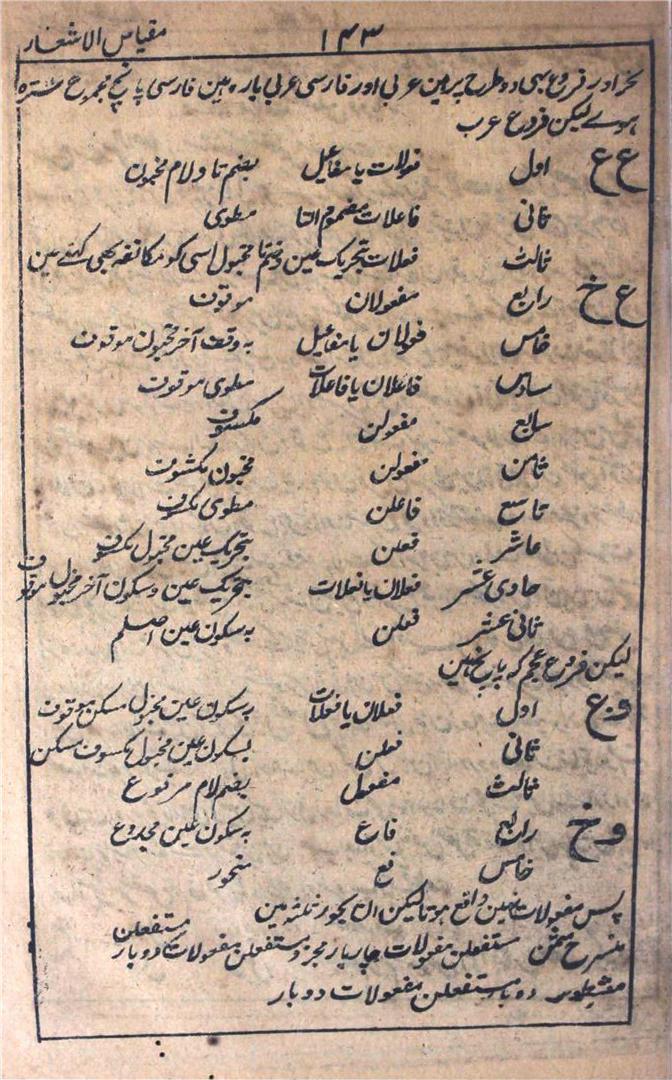 ۱۴۳ مقیاس الاشعار
فروع بھی دو طرح پر ہین عربی اور فارسی عربی بارہ ہین فارسی پانچ مجموع سترہ
ہوے لیکن فروع عرب
ع ع اول فعولات یا مفاعیل بضم تا و لام مخبون
ثانی فاعلات مضموم التا مطوی
ثالث فعلات بتحریک عین وضم تا مخبول اسی کو مکانفہ بھی کہتے ہین
ع خ رابع مفعولان موقوف
خامس فعولان یا مفاعیل بہ وقف آخر مخبون موقوف
سادس فاعلان یا فاعلات مطوی موقوف
سابع مفعولن مکسوف
ثامن فعولن مخبون مکشوف
تاسع فاعلن مطوی مکسوف
عاشر فعلن بتحریک عین مخبول مکسوف
حادی عشر فعلان یا فعلات بتحریک عین و سکون آخر مخبول موقوف
ثانی عشر فعلن بہ سکون عین اصلم
لیکن فروع عجم کہ پانچ ہین
و ع اول فعلان یا فعلات بسکون عین مخبول مسکن موقوف
ثانی فعلن بسکون عین مخبول مکسوف مسکن
ثالث مفعول بضم لام مرفوع
و خ رابع فاع بہ سکون عین مجدوع
خامس فع منحور
پس مفعولات نہین واقع ہوتا لیکن بحور ثلثہ مین
منسرح مثمن مستفعلن مفعولات چار بار مجزو مستفعلن مفعولات مستفعلن دو بار
مشطور دو بار مستفعلن مفعولات دو بار